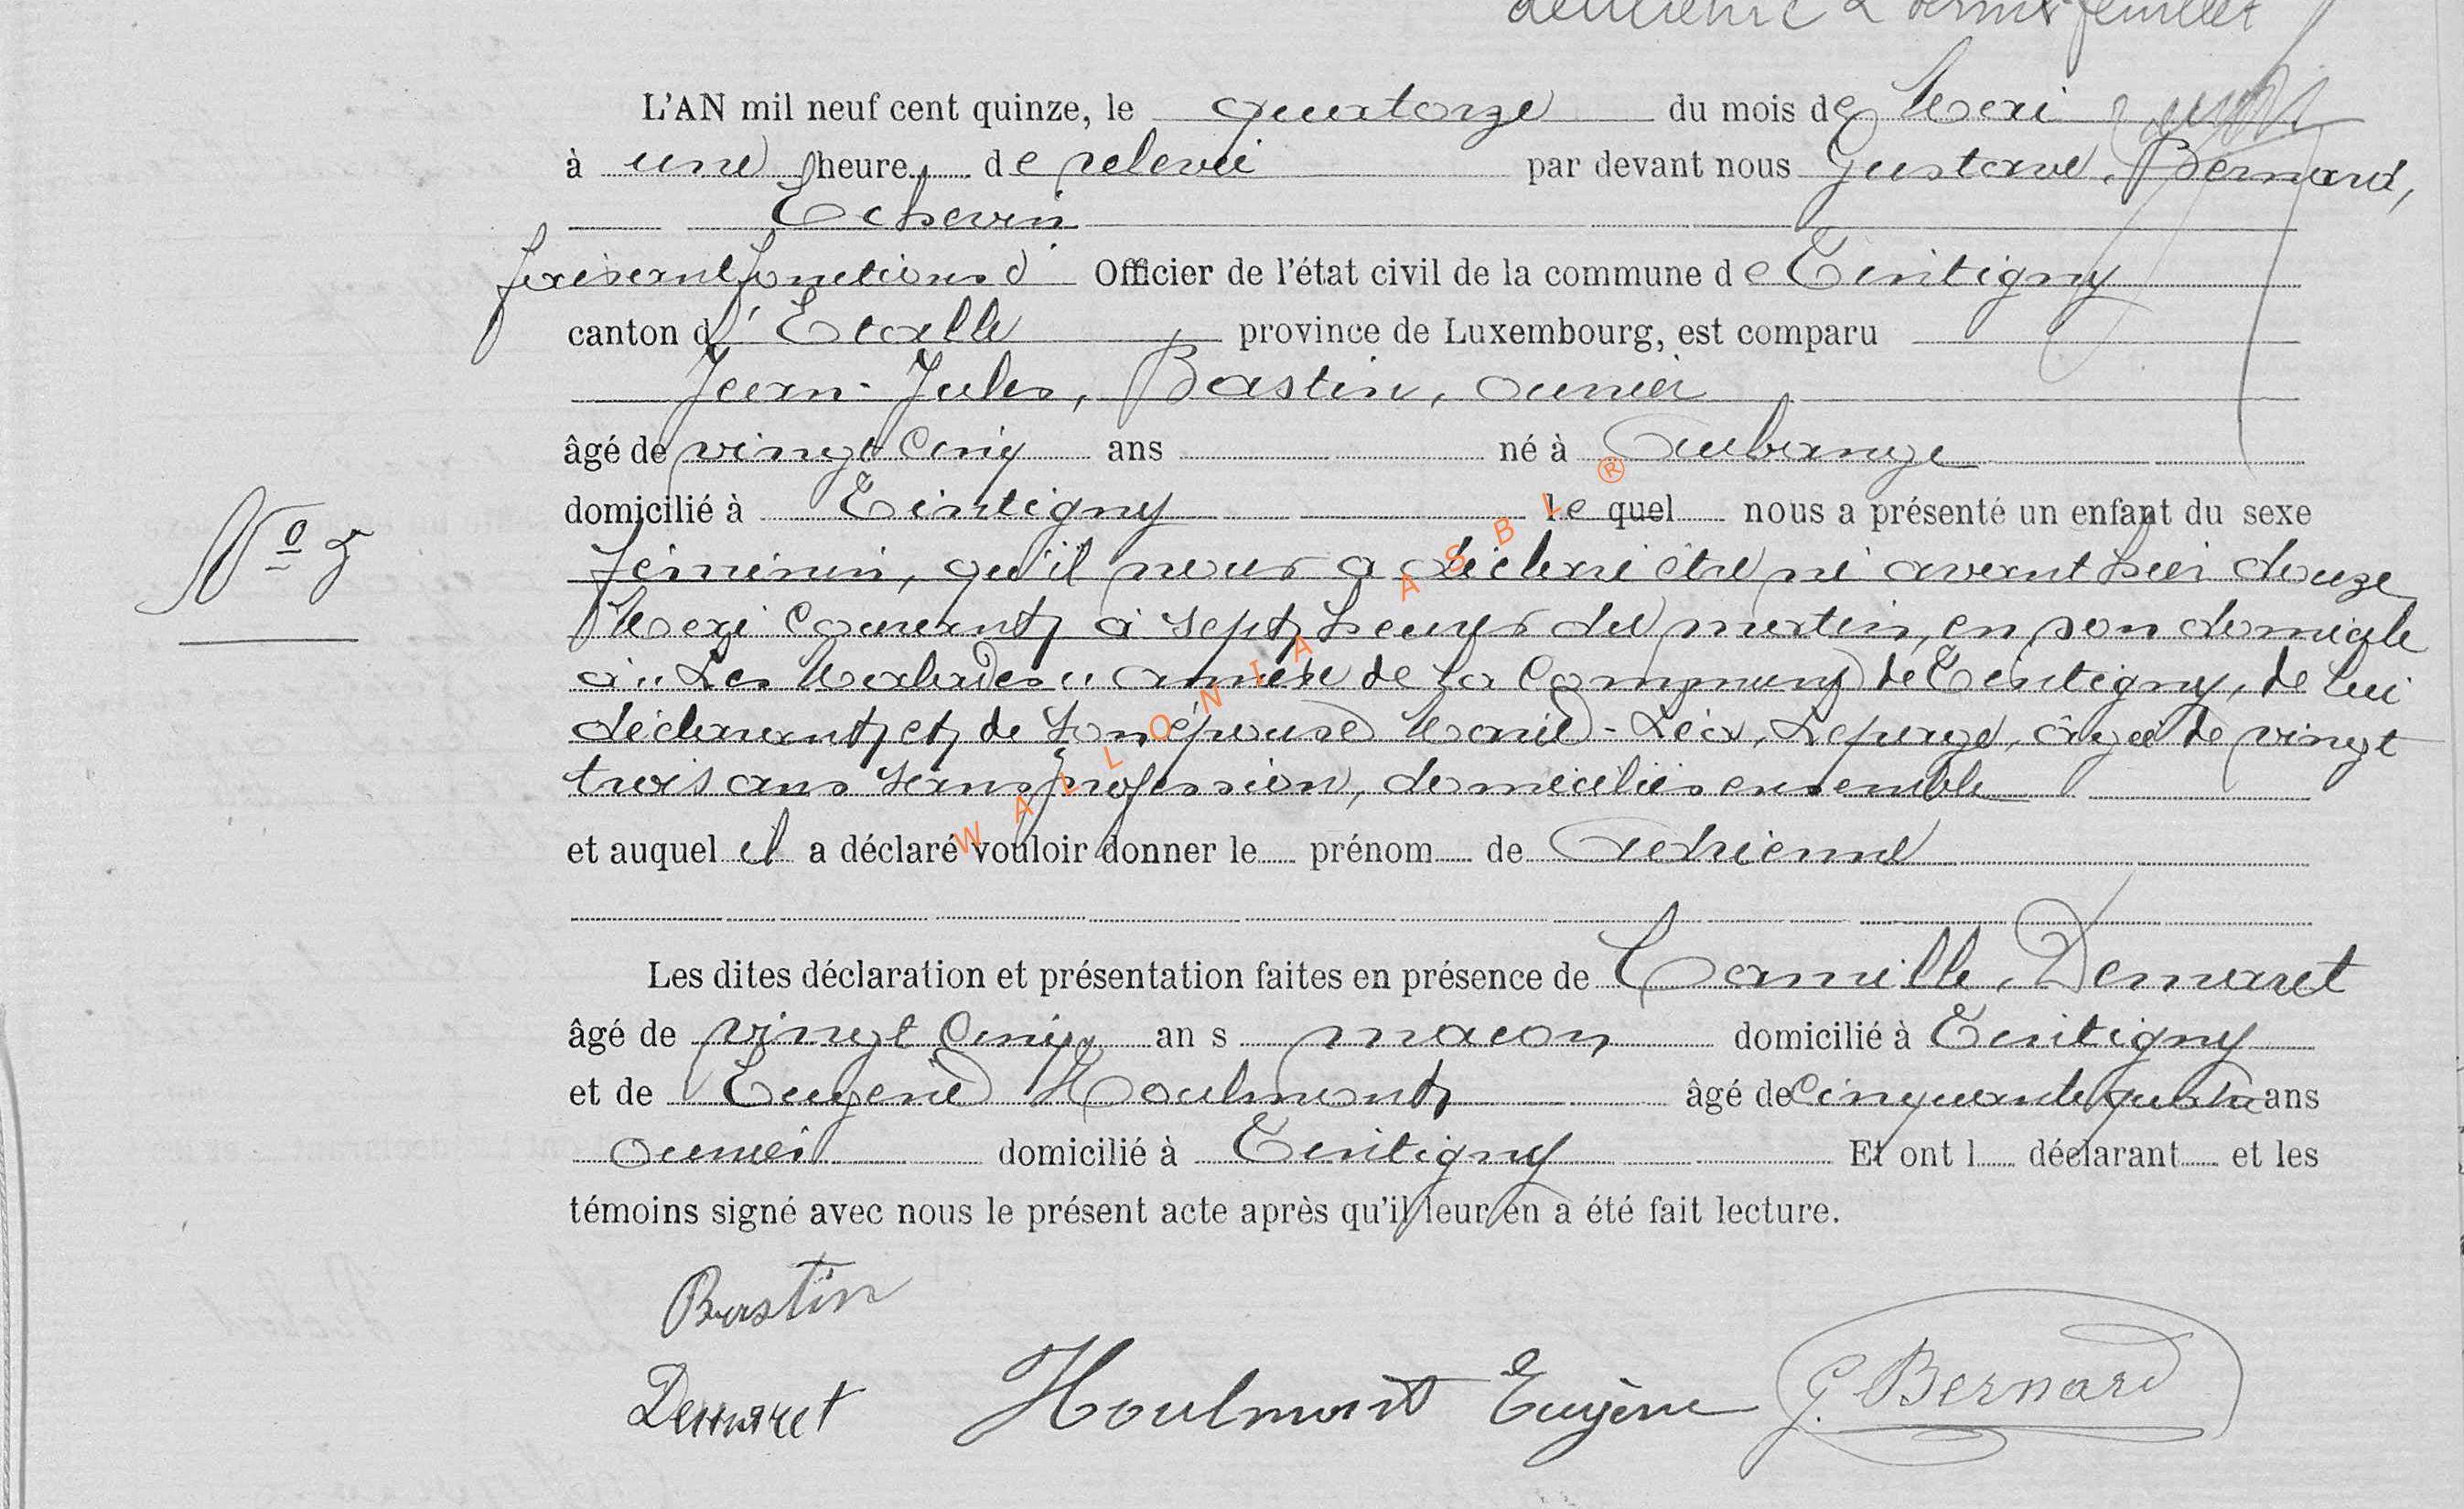 deuxième & dernier feuillet
L'AN mil neuf cent quinze, le quatorze du mois de Mai
à une heure de relevée par devant nous Gustave, Bernard,
Echevin
faisant fonctions d' Officier de l'état civil de la commune de Tintigny
canton d'Etalle province de Luxembourg, est comparu
Jean-Jules, Bastin, ouvrier
âgé de vingt cinq ans né à Aubange
domicilié à Tintigny lequel nous a présenté un enfant du sexe
N° 5
féminin, qu'il nous a déclaré être né avant hier douze
Mai courant, à sept heures du matin, en son domicile
à "Les Malades" annexe de la commune de Tintigny, de lui
déclarant, et de son épouse Marie-Léa, Lepage, âgée de vingt
trois ans sans profession, domiciliés ensemble
et auquel il a déclaré vouloir donner le prénom de Adrienne
Les dites déclaration et présentation faites en présence de Camille, Demaret
âgé de vingt cinq ans maçon domicilié à Tintigny
et de Eugène Houlmont, âgé de cinquante quatre ans
ouvrier domicilié à Tintigny Et ont l déclarant et les
témoins signé avec nous le présent acte après qu'il leur en a été fait lecture.
Bastin
Demaret Houlmont Eugène G. Bernard
WALLONIA ASBL ®